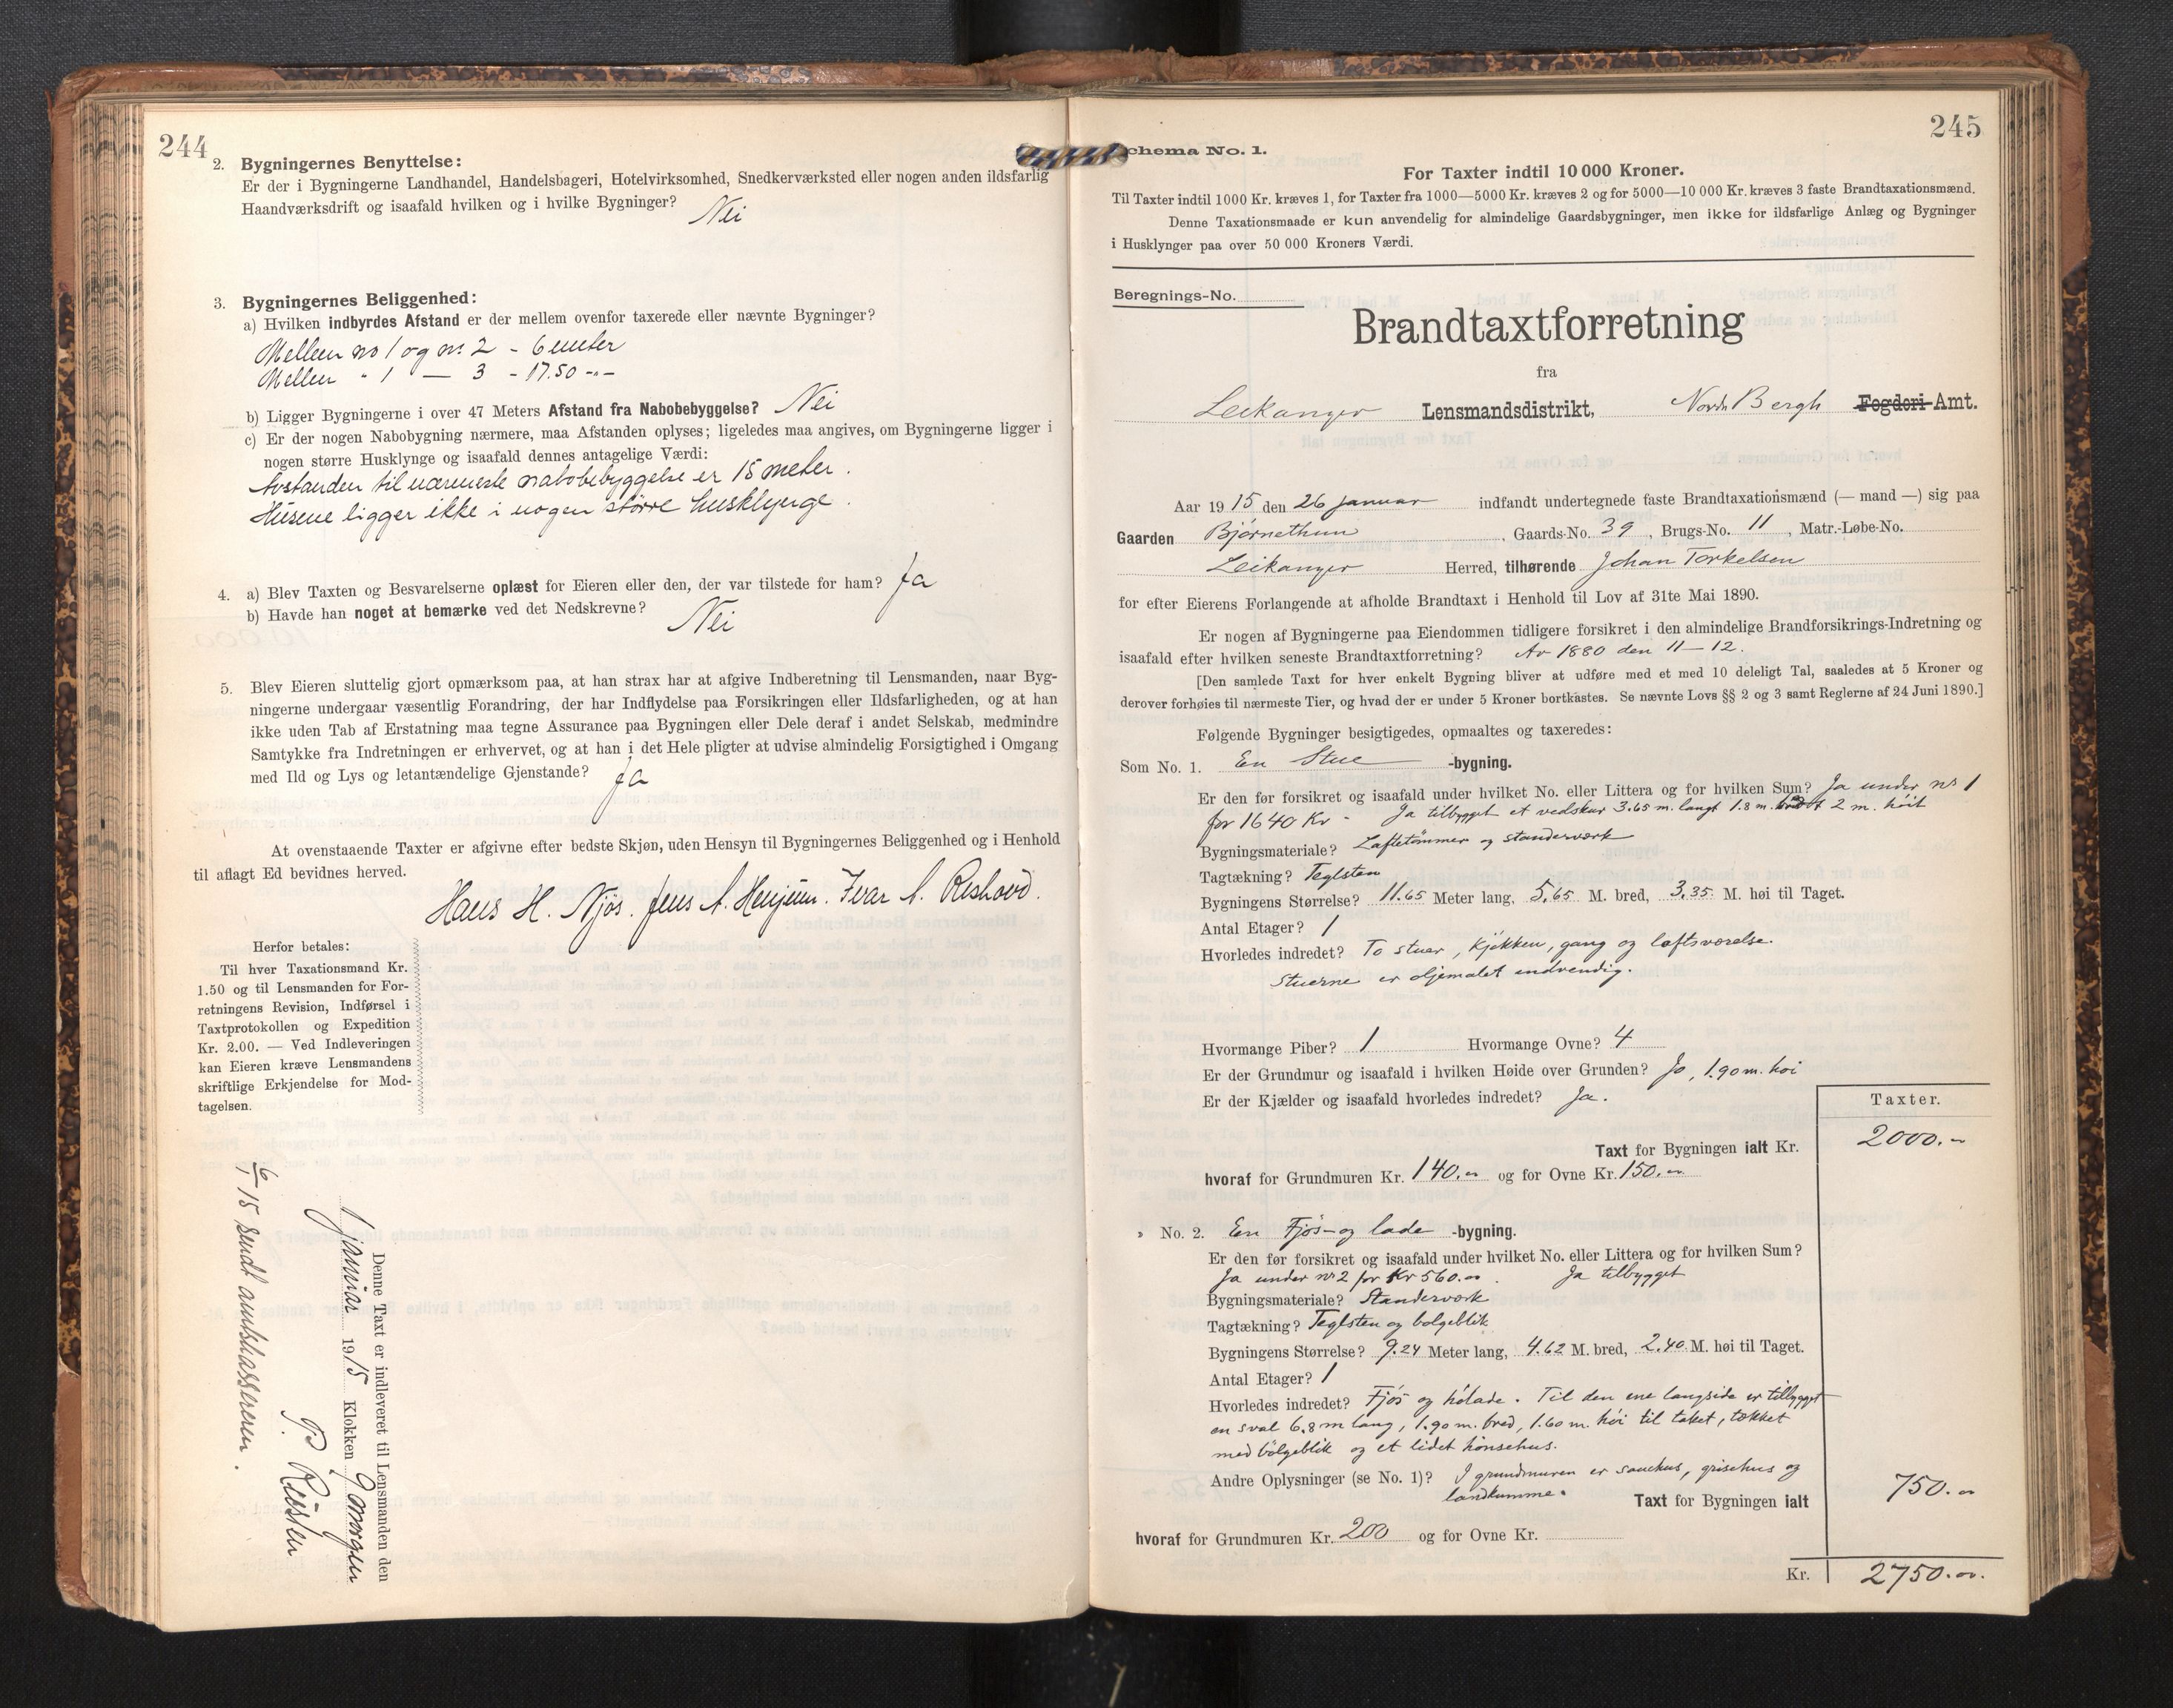 244
2. Bygningernes Benyttelse:
Er der i Bygningerne Landhandel, Handelsbageri, Hotelvirksomhed, Snedkerværksted eller nogen anden ildsfarlig
Haandværksdrift og isaafald hvilken og i hvilke Bygninger? Nei
3. Bygningernes Beliggenhed:
a) Hvilken indbyrdes Afstand er der mellem ovenfor taxerede eller nævnte Bygninger?
Mellem no 1 og no 2 - 6 meter
Mellem " 1 — 3 - 17.50 -"-
b) Ligger Bygningerne i over 47 Meters Afstand fra Nabobebyggelse? Nei
c) Er der nogen Nabobygning nærmere, maa Afstanden oplyses; ligeledes maa angives, om Bygningerne ligger i
nogen større Husklynge og isaafald dennes antagelige Værdi:
Avstanden til nærmeste nabobebyggelse er 15 meter.
Husene ligger ikke i nogen större husklynge.
4. a) Blev Taxten og Besvarelserne oplæst for Eieren eller den, der var tilstede for ham? Ja
b) Havde han noget at bemærke ved det Nedskrevne? Nei
5. Blev Eieren sluttelig gjort opmærksom paa, at han strax har at afgive Indberetning til Lensmanden, naar Byg-
ningerne undergaar væsentlig Forandring, der har Indflydelse paa Forsikringen eller Ildsfarligheden, og at han
ikke uden Tab af Erstatning maa tegne Assurance paa Bygningen eller Dele deraf i andet Selskab, medmindre
Samtykke fra Indretningen er erhvervet, og at han i det Hele pligter at udvise almindelig Forsigtighed i Omgang
med Ild og Lys og letantændelige Gjenstande? Ja
At ovenstaaende Taxter er afgivne efter bedste Skjøn, uden Hensyn til Bygningernes Beliggenhed og i Henhold
til aflagt Ed bevidnes herved.
Hans H. Njøs. Jens A. Henjum. Ivar A. Rishovd.
Herfor betales:
Til hver Taxationsmand Kr.
1.50 og til Lensmanden for For-
retningens Revision, Indførsel i
Taxtprotokollen og Expedition
Kr. 2.00. — Ved Indleveringen
kan Eieren kræve Lensmandens
skriftlige Erkjendelse for Mod-
tagelsen.
Denne Taxt er indleveret til Lensmanden den
januar 1915 Klokken 9 morgen
15 Sendt amtskassereren.
245
Schema No. 1.
For Taxter indtil 10 000 Kroner.
Til Taxter indtil 1000 Kr. kræves 1, for Taxter fra 1000—5000 Kr. kræves 2 og for 5000—10 000 Kr. kræves 3 faste Brandtaxationsmænd.
Denne Taxationsmaade er kun anvendelig for almindelige Gaardsbygninger, men ikke for ildsfarlige Anlæg og Bygninger
i Husklynger paa over 50 000 Kroners Værdi.
Beregnings-No.
Brandtaxtforretning
fra
Leikanger Lensmandsdistrikt, Nordr. Bergh Fogderi-Amt.
Aar 1915 den 26 januar indfandt undertegnede faste Brandtaxationsmænd (— mand —) sig paa
Gaarden Bjørnethun, Gaards-No. 39, Brugs-No. 11, Matr.-Løbe-No.
Leikanger Herred, tilhørende Johan Torkelsen
for efter Eierens Forlangende at afholde Brandtaxt i Henhold til Lov af 31te Mai 1890.
Er nogen af Bygningerne paa Eiendommen tidligere forsikret i den almindelige Brandforsikrings-Indretning og
isaafald efter hvilken seneste Brandtaxtforretning? Av 1880 den 11—12.
[Den samlede Taxt for hver enkelt Bygning bliver at udføre med et med 10 deleligt Tal, saaledes at 5 Kroner og
derover forhøies til nærmeste Tier, og hvad der er under 5 Kroner bortkastes. Se nævnte Lovs §§ 2 og 3 samt Reglerne af 24 Juni 1890.]
Følgende Bygninger besigtigedes, opmaaltes og taxeredes:
Som No. 1. En Stue -bygning.
Er den før forsikret og isaafald under hvilket No. eller Littera og for hvilken Sum? Ja under no 1
for 1640 Kr - Ja tilbygget et vedskur 3.65 m. langt 1.8 m. bredt 2 m. höit
Bygningsmateriale? Laftetömmer og standerværk
Tagtækning? Teglsten
Bygningens Størrelse? 11.65 Meter lang, 5.65 M. bred, 3.35 M. høi til Taget.
Antal Etager? 1
Hvorledes indredet? To stuer, kjökken, gang og loftsværelse.
Stuerne er oljemalet indvendig.
Hvormange Piber? 1 Hvormange Ovne? 4
Er der Grundmur og isaafald i hvilken Høide over Grunden? Jo, 1.90 m. høi
Er der Kjælder og isaafald hvorledes indredet? Ja.
Taxter.
Taxt for Bygningen ialt Kr. 2000.-
hvoraf for Grundmuren Kr. 140.- og for Ovne Kr. 150.-
" No. 2. En Fjøs- og lade -bygning.
Er den før forsikret og isaafald under hvilket No. eller Littera og for hvilken Sum?
Ja under no 2 for Kr 560.-. Ja tilbygget
Bygningsmateriale? Standerværk
Tagtækning? Teglsten og bolgeblik
Bygningens Størrelse? 9.24 Meter lang, 4.62 M. bred, 2.40 M. høi til Taget.
Antal Etager? 1
Hvorledes indredet? Fjös og hölade. Til den ene langside er tilbygget
en sval 6.8 m lang, 1.90 m. bred, 1.60 m. höi til taket, tækket
med bölgeblik og et lidet hönsehus.
Andre Oplysninger (se No. 1)? I grundmuren er sauehus, grisehus og
landkumme.
Taxt for Bygningen ialt 750.-
hvoraf for Grundmuren Kr. 200 og for Ovne Kr.
Kr. 2750.-